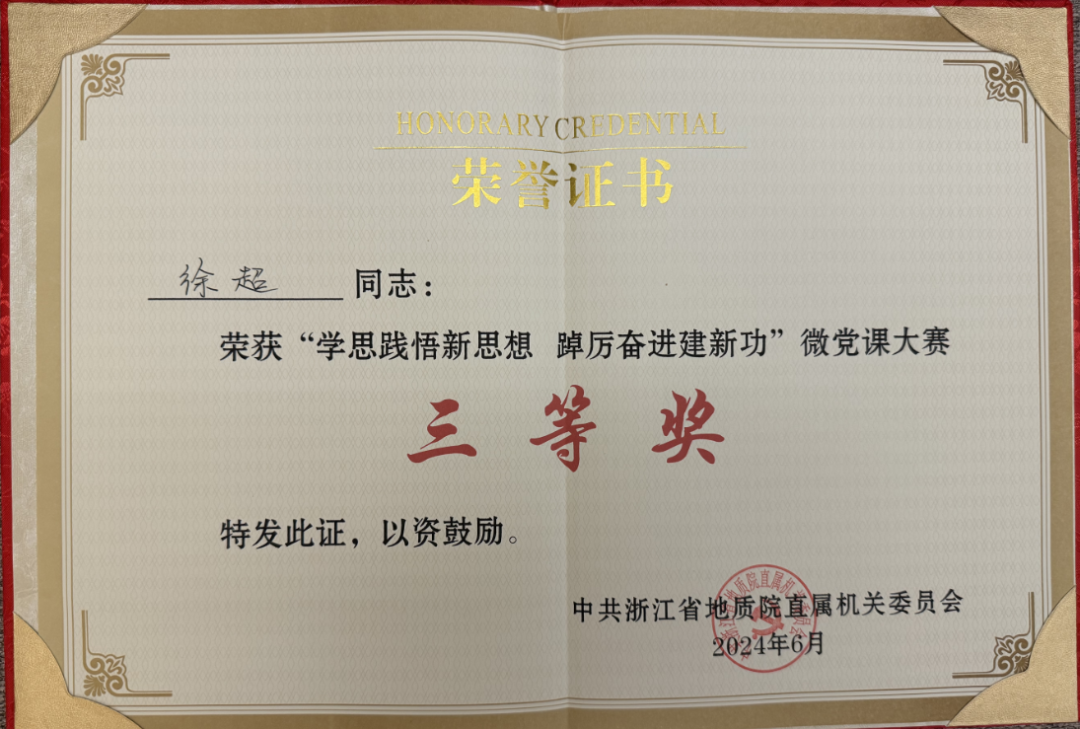 HONORARY CREDENTIAL
荣誉证书
徐超 同志：
荣获“学思践悟新思想 踔厉奋进建新功”微党课大赛
三等奖
特发此证，以资鼓励。
中共浙江省地质院直属机关委员会
2024年6月
中共浙江省地质院直属机关委员会